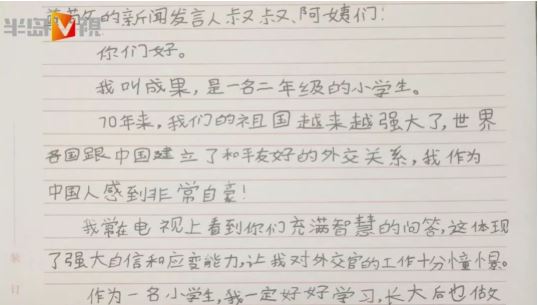 半岛V视
的新闻发言人叔叔、阿姨们：
你们好。
我叫成果，是一名二年级的小学生。
70年来，我们的祖国越来越强大了，世界
各国跟中国建立了和平友好的外交关系，我作为
中国人感到非常自豪！
我常在电视上看到你们充满智慧的问答，这体现
了强大自信和应变能力，让我对外交官的工作十分憧憬。
作为一名小学生，我一定好好学习，长大后也做